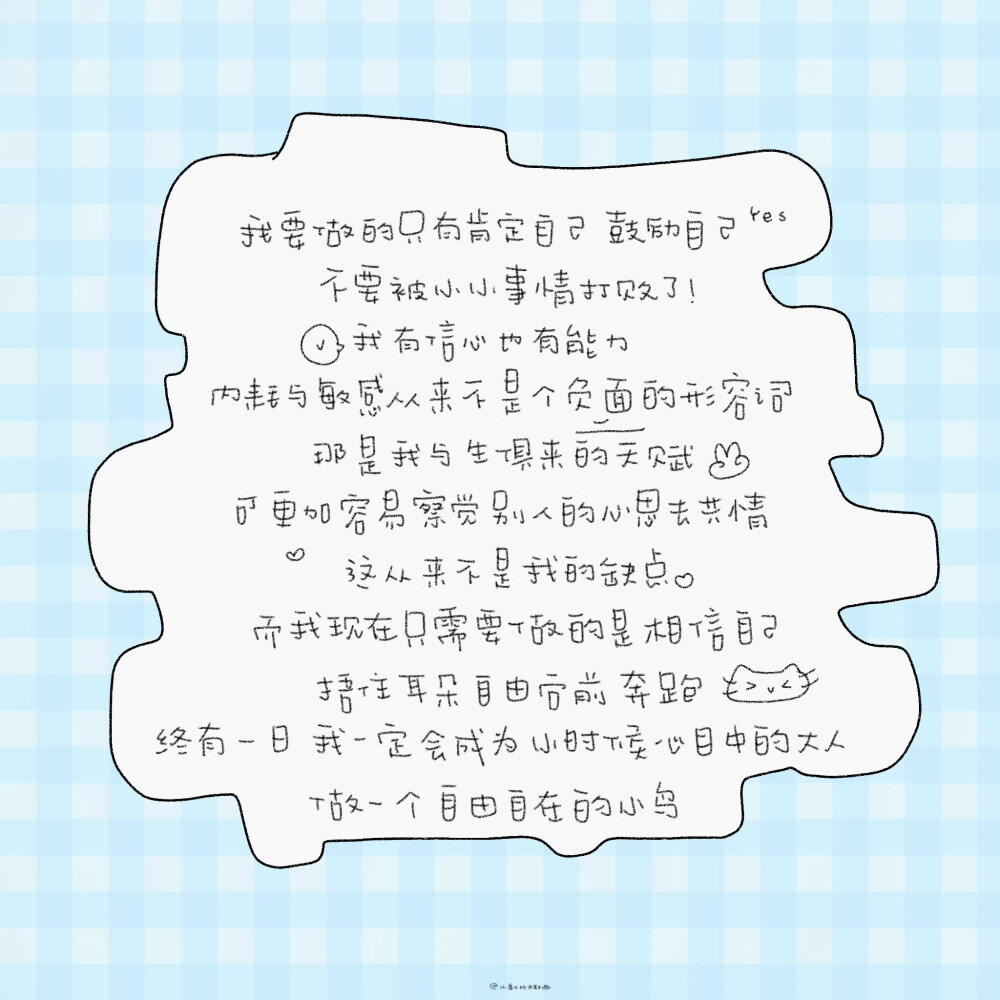 我要做的只有肯定自己 鼓励自己 Yes
不要被小小事情打败了!
我有信心也有能力
内耗与敏感从来不是个负面的形容词
那是我与生俱来的天赋
可更加容易察觉别人的心思去共情
这从来不是我的缺点
而我现在只需要做的是相信自己
捂住耳朵自由向前奔跑
终有一日 我一定会成为小时候心目中的大人
做一个自由自在的小鸟